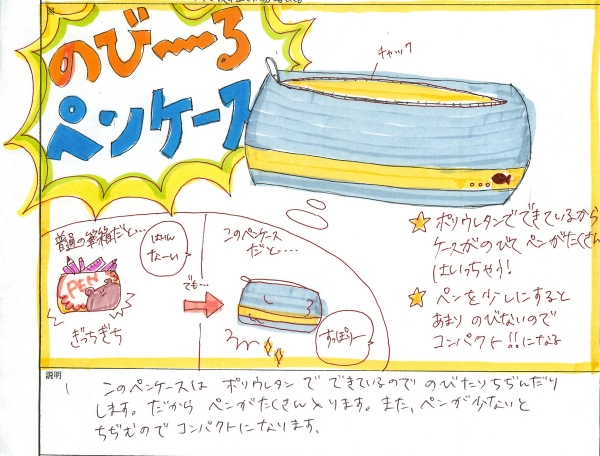 のび〜る
ペンケース
チャック
普通の筆箱だと…
はいん
なーい
PEN
ぎっちぎち
でも…
このペンケース
だと…
すっぽりー
ポリウレタンでできているから
ケースがのびてペンがたくさん
はいっちゃう!
ペンを少しにすると
あまりのびないので
コンパクト!!になる
説明
このペンケースは ポリウレタンで できているので のびたりちぢんだり
します。だから ペンがたくさん入ります。また、ペンが少ないと
ちぢむので コンパクトになります。